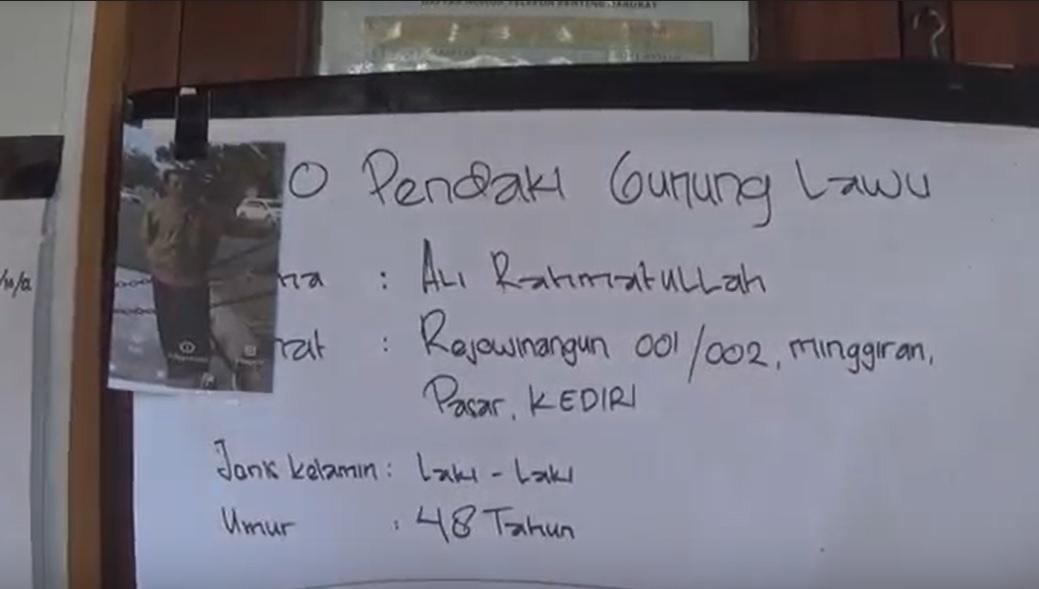 DAFTAR NOMOR TELEPON PENTING
O Pendaki Gunung Lawu
na : ALI RahmatuLLah
mat : Rejowinangun 001/002, Minggiran,
Pasar, KEDIRI
Jenis kelamin : Laki - Laki
Umur : 48 Tahun